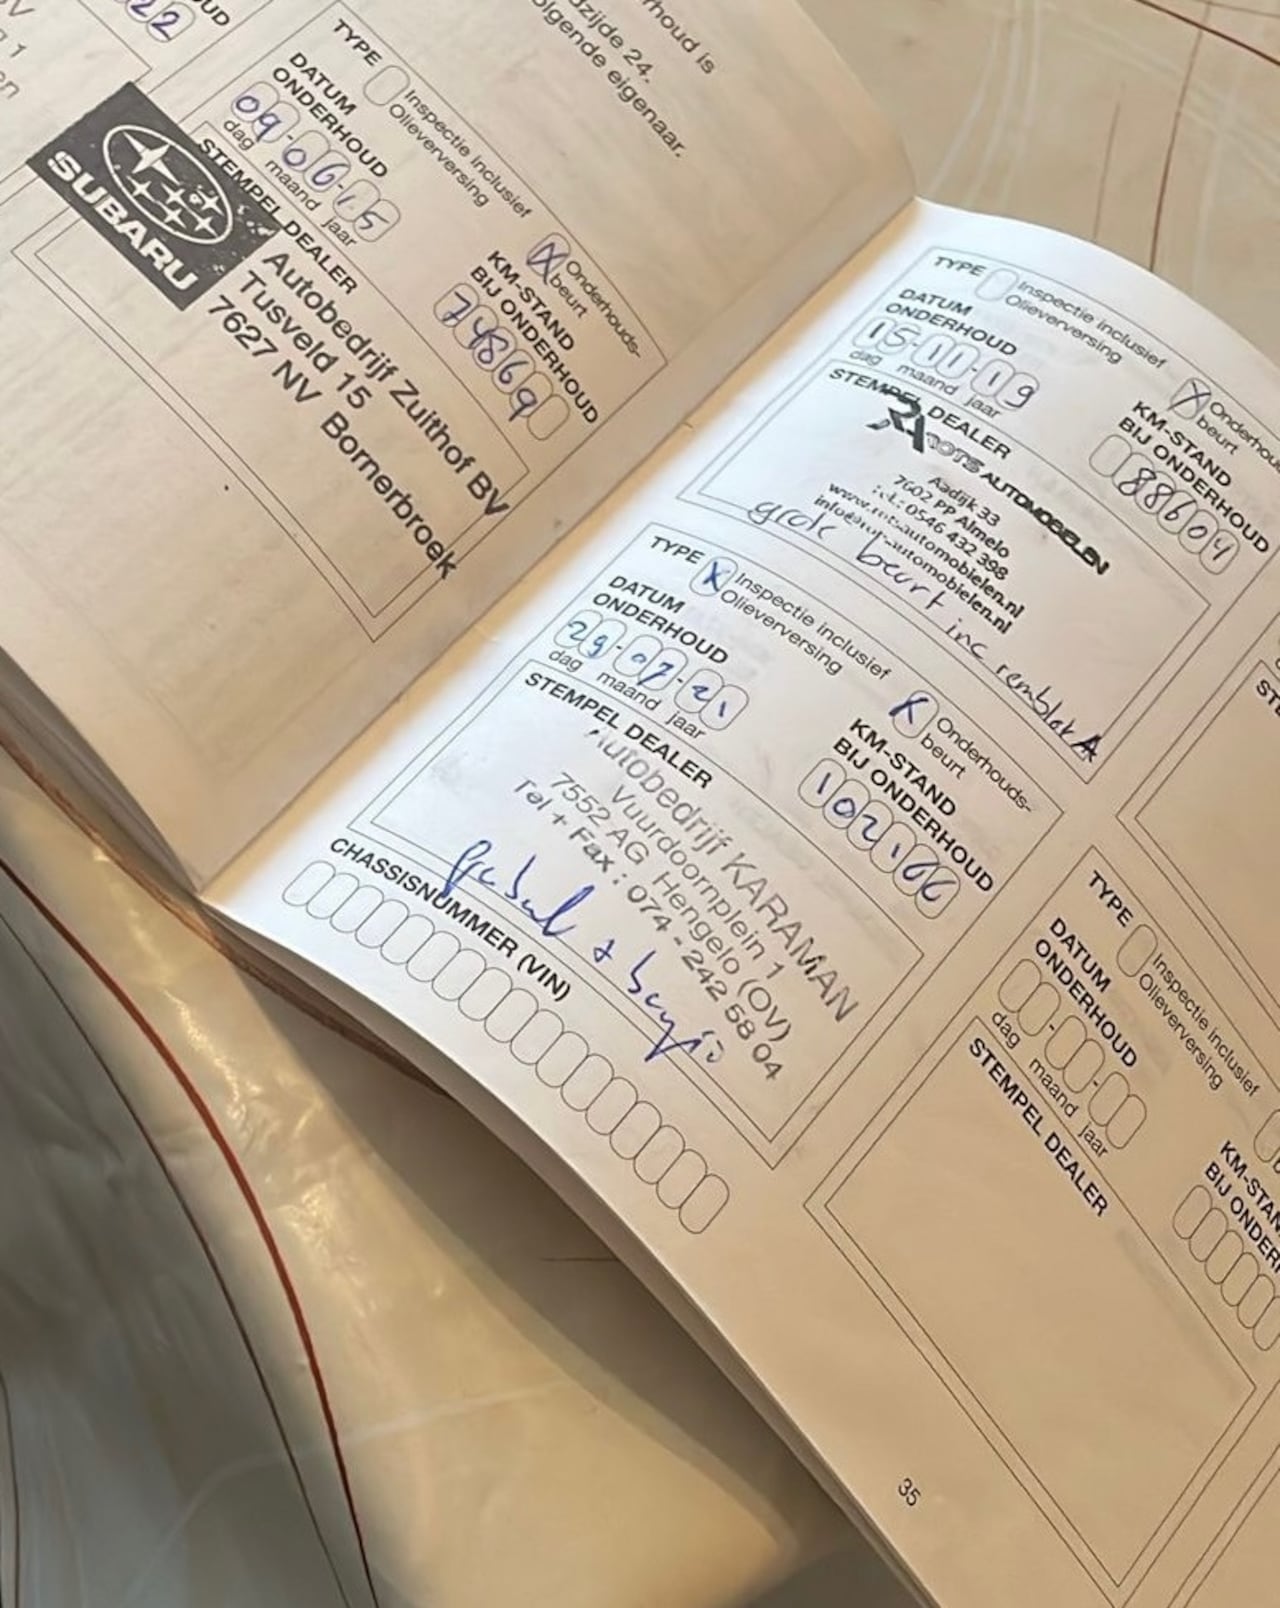 22
OUD
rhoud is
dzijde 24.
olgende eigenaar.
TYPE
Inspectie inclusief
Olieverversing
Onderhouds-
beurt
DATUM
ONDERHOUD
09-06-15
dag maand jaar
KM-STAND
BIJ ONDERHOUD
74869
STEMPEL DEALER
SUBARU
Autobedrijf Zuithof BV
Tusveld 15
7627 NV Bornerbroek
TYPE
Inspectie inclusief
Olieverversing
Onderhou
beurt
DATUM
ONDERHOUD
15-00-19
dag maand jaar
KM-STAND
BIJ ONDERHOUD
88604
STEMPEL DEALER
AUTOMOBIELEN
Aadijk 33
7602 PP Almelo
tel.: 0546 432 398
grote beurt inc remblok A
TYPE
X Inspectie inclusief
Olieverversing
X Onderhouds-
beurt
DATUM
ONDERHOUD
29-07-21
dag maand jaar
KM-STAND
BIJ ONDERHOUD
102166
STEMPEL DEALER
Autobedrijf KARAMAN
Vuurdoornplein 1
7552 AG Hengelo (OV)
Tel + Fax : 074 - 242 58 04
CHASSISNUMMER (VIN)
TYPE
Inspectie inclusief
Olieverversing
DATUM
ONDERHOUD
dag maand jaar
KM-STAN
BIJ ONDERH
STEMPEL DEALER
STE
35